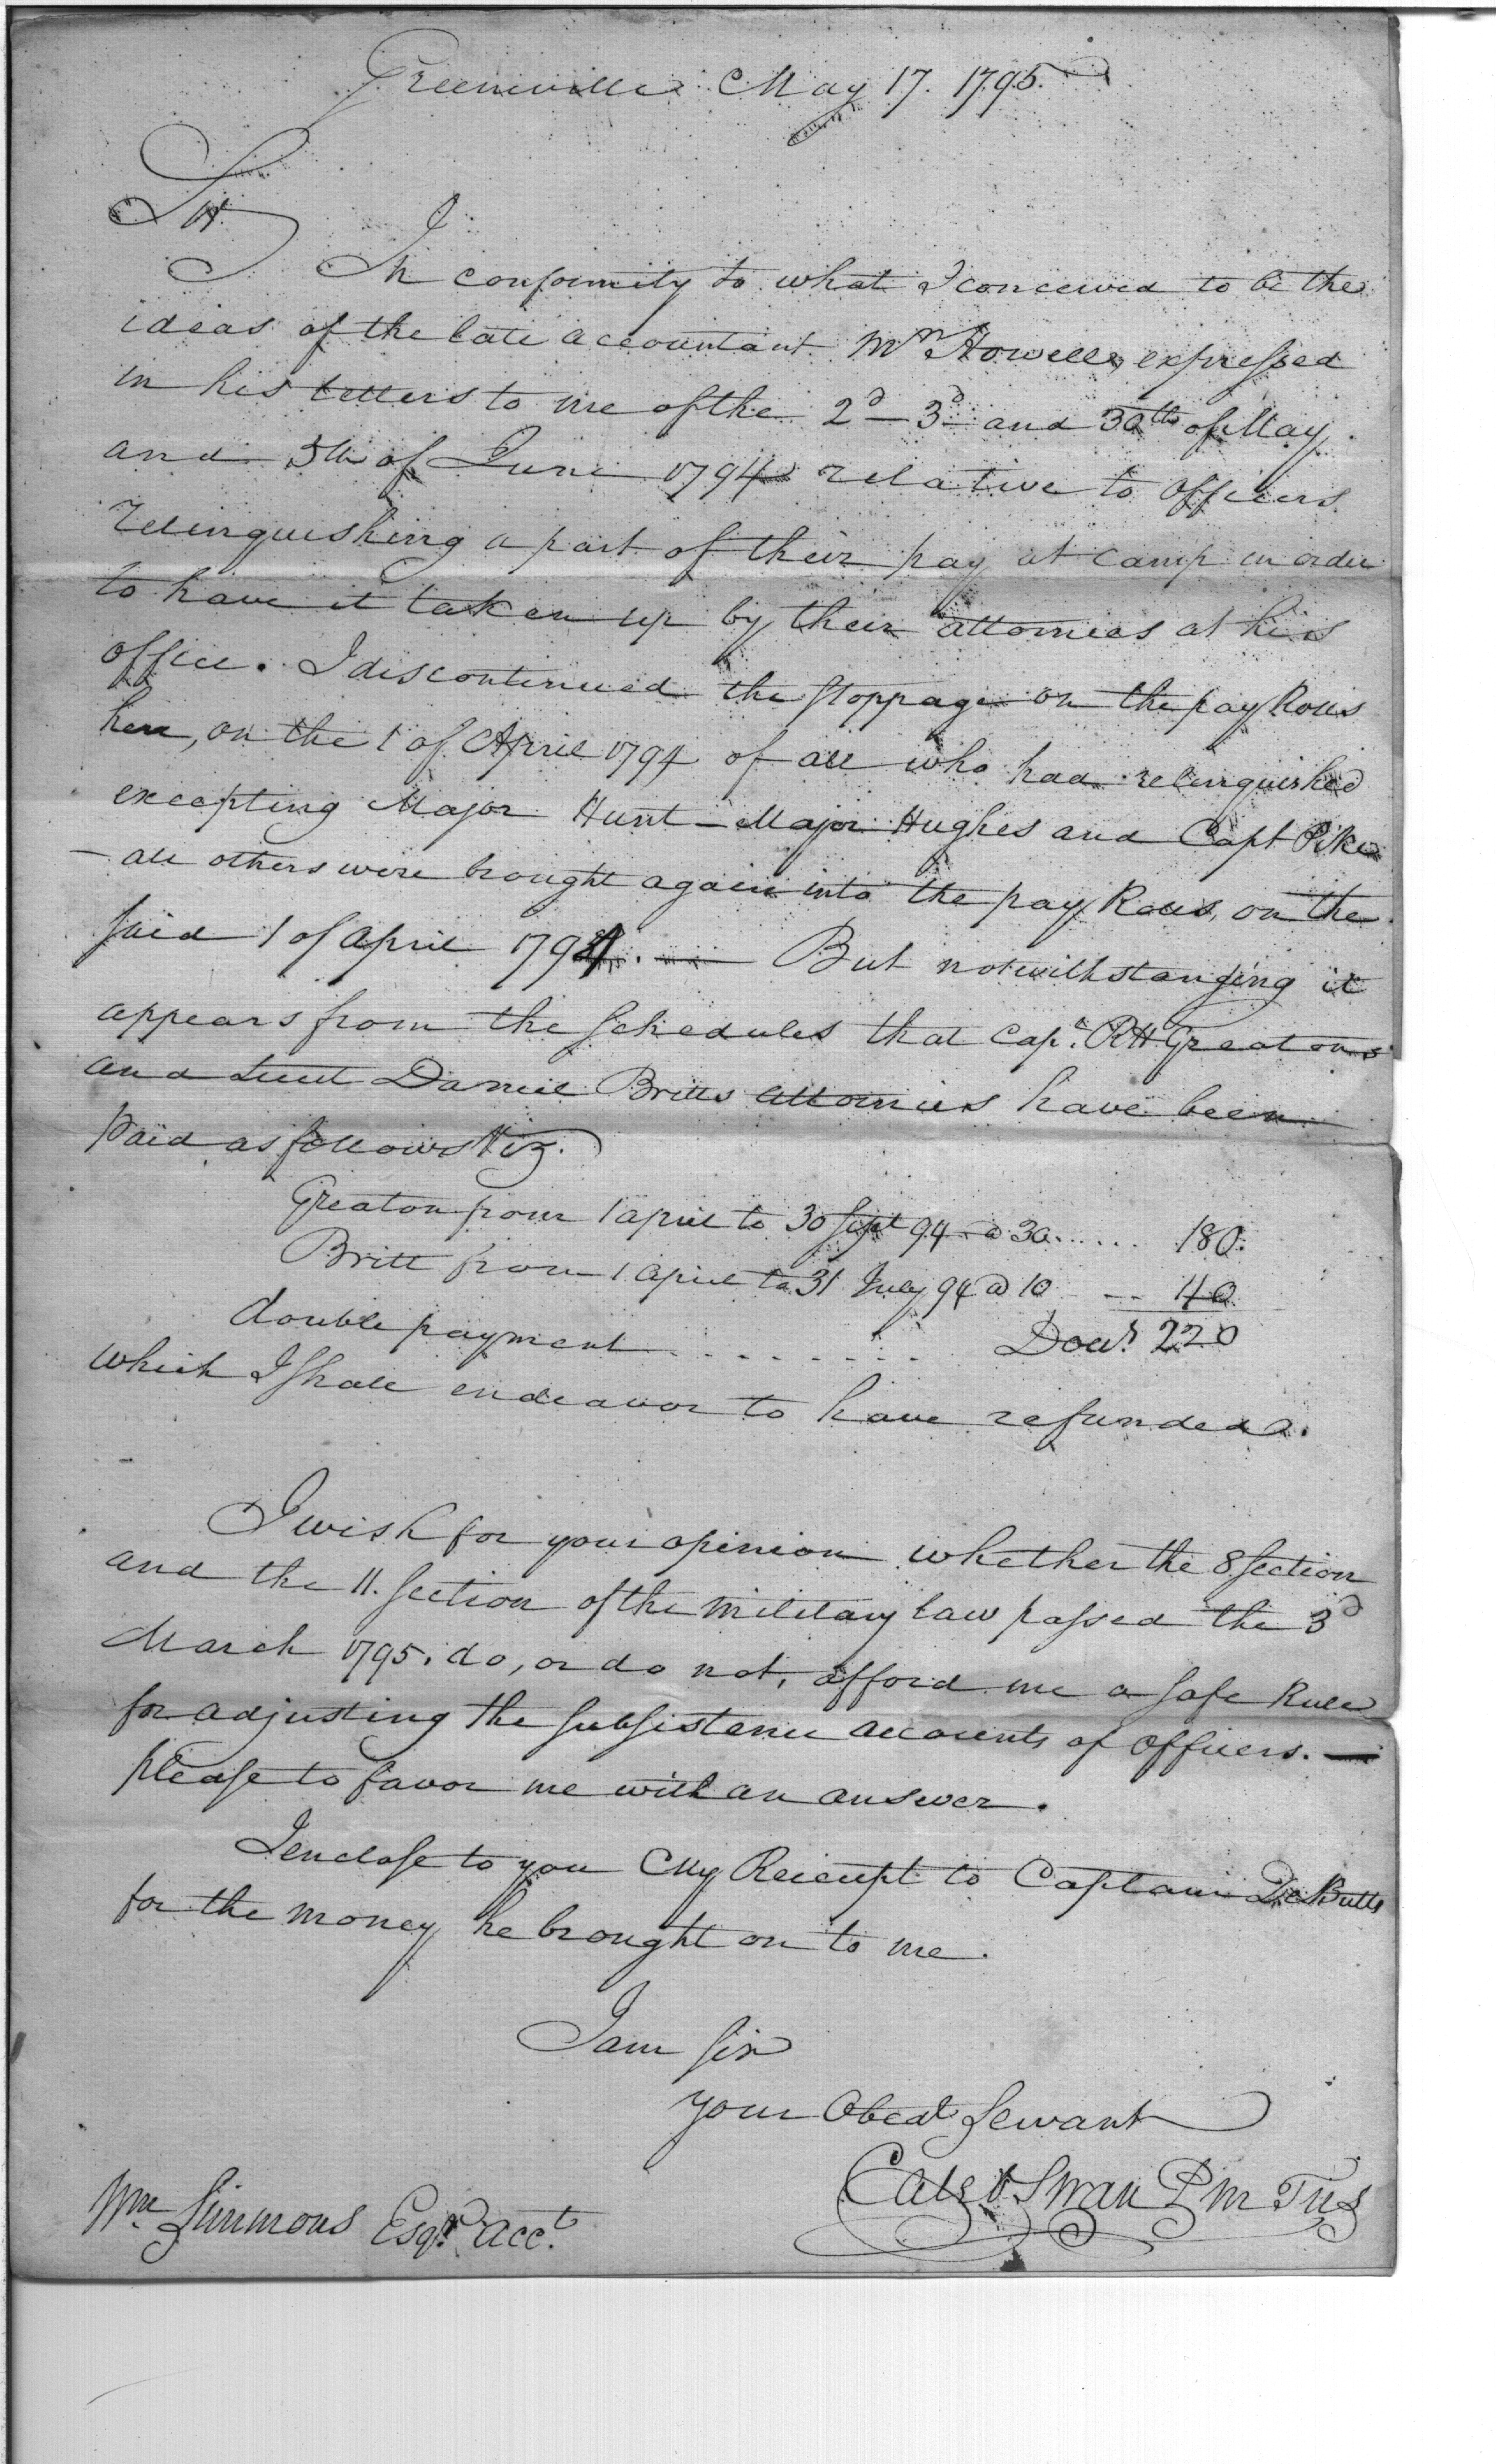 Greeneville May 17. 1795.
Sir
In conformity to what I conceived to be the
ideas of the late accountant Mr Howell, expressed
in his letters to me of the 2d – 3d and 30th of May
and 5th of June 1794 relative to officers
relinquishing a part of their pay at camp in order
to have it taken up by their attornies at his
office. I discontinued the stoppage on the pay Rolls
here, on the 1 of April 1794 of all who had relinquished
excepting Major Hunt – Major Hughes and Capt Pike
– all others were brought again into the pay Rolls, on the
said 1 of April 1794. — But notwithstanding it
appears from the schedules that Capt. RH Greatons
and Lieut Daniel Britts attornies have been
paid as follows Viz.
Greaton from 1 april to 30 Sept 94 @ 30 ..... 180.
Britt from 1 april to 31 July 94 @ 10 --- 40
double payment ......... Dolls. 220
which I shall endeavor to have refunded.
I wish for your opinion whether the 8 section
and the 11. section of the military law passed the 3d
March 1795. do, or do not, afford me a safe Rule
for adjusting the subsistence accounts of officers. —
please to favor me with an answer.
I enclose to you My Receipt to Captain De Butts
for the money he brought on to me.
I am sir
your Obedt Servant
Caleb Swan P M TUS
Wm Simmons Esqr. Acct.